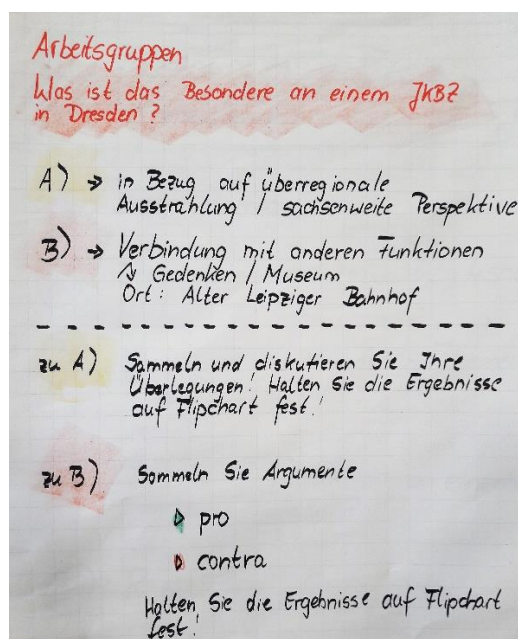 Arbeitsgruppen
Was ist das Besondere an einem JKBZ
in Dresden?
A) → in Bezug auf überregionale
Ausstrahlung / sachsenweite Perspektive
B) → Verbindung mit anderen Funktionen
↳ Gedenken / Museum
Ort: Alter Leipziger Bahnhof
zu A) Sammeln und diskutieren Sie Ihre
Überlegungen! Halten Sie die Ergebnisse
auf Flipchart fest!
zu B) Sammeln Sie Argumente
▷ pro
▷ contra
Halten Sie die Ergebnisse auf Flipchart
fest!